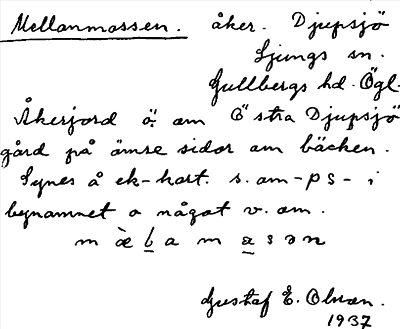 Mellanmossen. åker. Djupsjö
Ljungs sn.
Gullbergs hd. Ögl.
Åkerjord ö. om Östra Djupsjö
gård på ömse sidor om bäcken.
Synes å ek-kart. s. om -ps- i
bynamnet o något v. om.
m æ̀ l a m a s ə n
Gustaf E. Olson.
1937